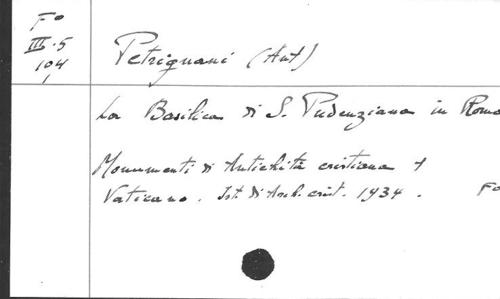 Fo
III.5
104
Petrignani (Ant)
La Basilica di S. Pudenziana in Roma
Monumenti di Antichità cristiana
Vaticano. Ist. di Arch. crist. 1934. Fo